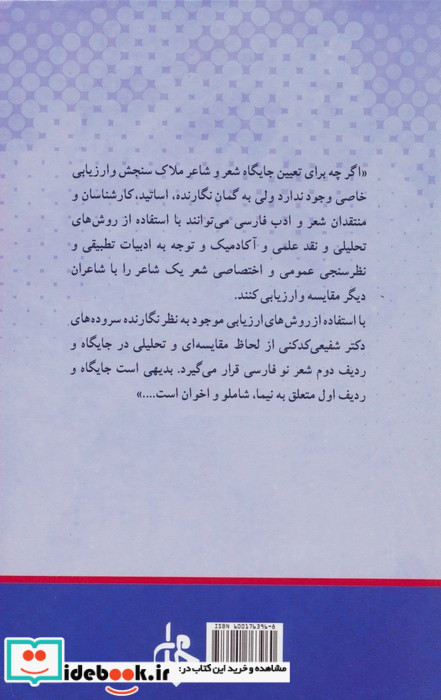 «اگر چه برای تعیین جایگاه شعر و شاعر ملاک سنجش و ارزیابی
خاصی وجود ندارد ولی به گمان نگارنده، اساتید، کارشناسان و
منتقدان شعر و ادب فارسی می‌توانند با استفاده از روش‌های
تحلیلی و نقد علمی و آکادمیک و توجه به ادبیات تطبیقی و
نظرسنجی عمومی و اختصاصی شعر یک شاعر را با شاعران
دیگر مقایسه و ارزیابی کنند.
با استفاده از روش‌های ارزیابی موجود به نظر نگارنده سروده‌های
دکتر شفیعی‌کدکنی از لحاظ مقایسه‌ای و تحلیلی در جایگاه و
ردیف دوم شعر نو فارسی قرار می‌گیرد. بدیهی است جایگاه و
ردیف اول متعلق به نیما، شاملو و اخوان است....»
ISBN 600176396-6
مشاهده و خرید این کتاب در:
idebook.ir